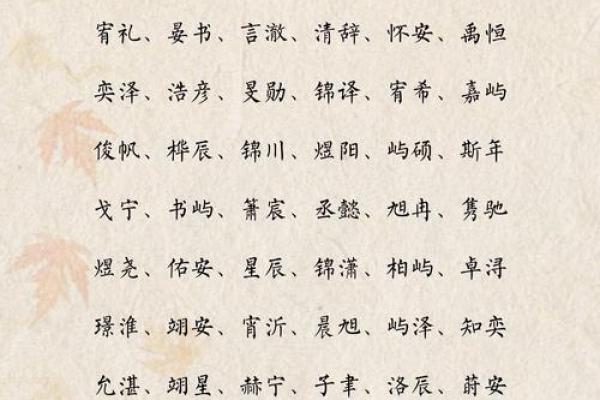 宥礼、晏书、言澈、清辞、怀安、禹恒
奕泽、浩彦、旻勋、锦译、宥希、嘉屿
俊帆、桦辰、锦川、煜阳、屿硕、斯年
戈宁、书屿、箫宸、丞懿、旭冉、隽驰
煜尧、佑安、星辰、锦潇、柏屿、卓浔
璟淮、翊安、宵沂、晨旭、屿泽、知奕
允湛、翊星、赫宁、子聿、洛辰、莳安